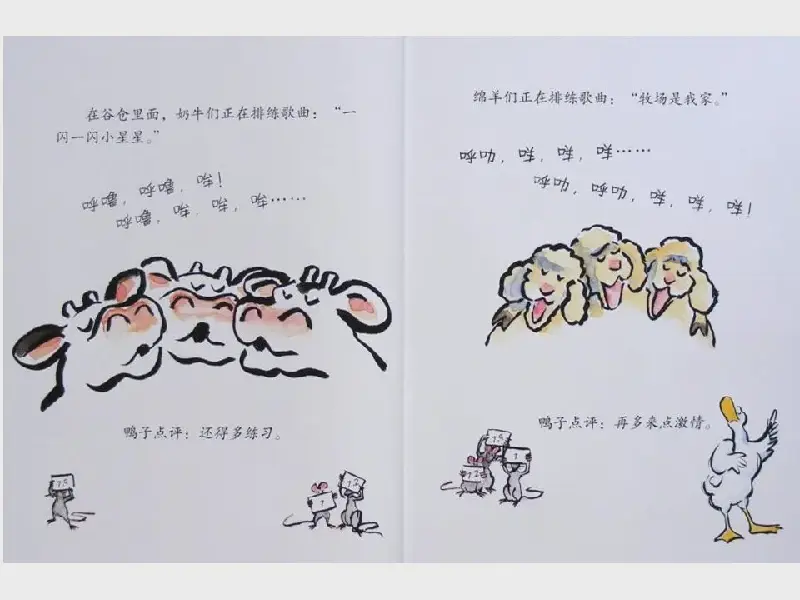 在谷仓里面，奶牛们正在排练歌曲：“一
闪一闪小星星。”
呼噜，呼噜，哞！
呼噜，哞，哞，哞……
鸭子点评：还得多练习。
绵羊们正在排练歌曲：“牧场是我家。”
呼叻，咩，咩，咩……
呼叻，呼叻，咩，咩，咩！
鸭子点评：再多来点激情。